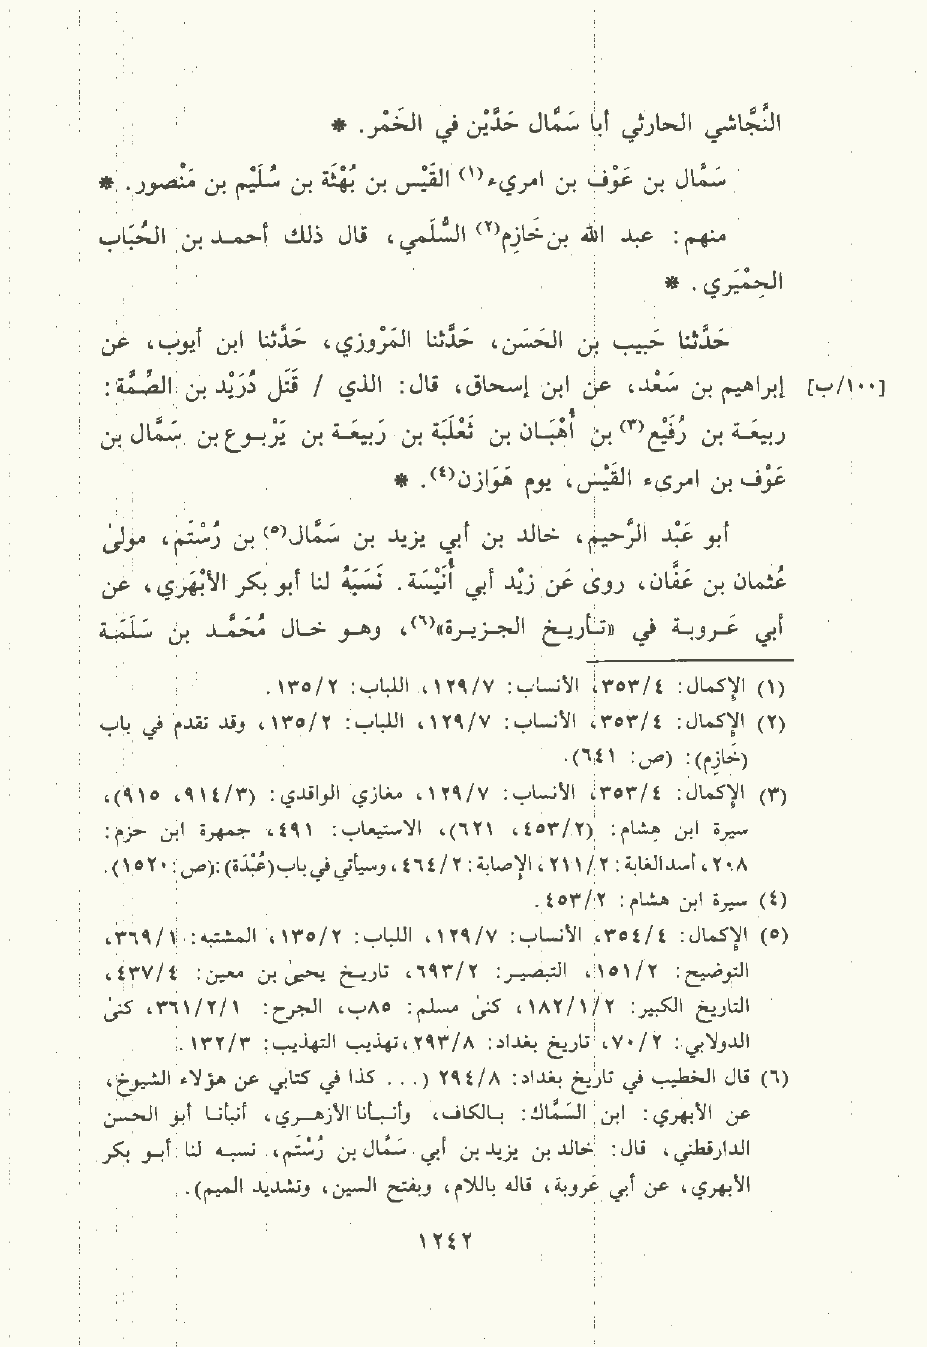 النَّجَّاشي الحارثي أبا سَمَّال حَدَّيْن في الخَمْر. *
سَمَّال بن عَوْف بن امرىء(١) القَيْس بن بُهْثَة بن سُلَيْم بن مَنْصور. *
منهم: عبد الله بن خَازِم(٢) السُّلَمي، قال ذلك أحمد بن الحُبَاب
الحِمْيَري. *
حَدَّثنا حَبيب بن الحَسَن، حَدَّثنا المَرْوزي، حَدَّثنا ابن أيوب، عن
[١٠٠/ب] إبراهيم بن سَعْد، عن ابن إسحاق، قال: الذي / قَتَلَ دُرَيْد بن الصِّمَّة:
ربيعة بن رُفَيْع(٣) بن أُهْبَان بن ثَعْلَبَة بن رَبيعَة بن يَرْبوع بن سَمَّال بن
عَوْف بن امرىء القَيْس، يوم هَوَازن(٤). *
أبو عَبْد الرَّحيم، خالد بن أبي يزيد بن سَمَّال(٥) بن رُسْتَم، مولىٰ
عُثمان بن عَفَّان، روى عَن زيْد أبي أُنَيْسَة. نَسَبَهُ لنا أبو بكر الأبْهَري، عن
أبي عَروبة في «تأريخ الجزيرة»(٦)، وهو خال مُحَمَّد بن سَلَمَة
(١) الإكمال: ٣٥٣/٤، الأنساب: ١٢٩/٧، اللباب: ١٣٥/٢.
(٢) الإكمال: ٣٥٣/٤، الأنساب: ١٢٩/٧، اللباب: ١٣٥/٢، وقد تقدم في باب
(خَازِم): (ص: ٦٤١).
(٣) الإكمال: ٣٥٣/٤، الأنساب: ١٢٩/٧، مغازي الواقدي: (٩١٤/٣، ٩١٥)،
سيرة ابن هشام: (٤٥٣/٢، ٦٢١)، الاستيعاب: ٤٩١، جمهرة ابن حزم:
٢٠٨، أسد الغابة: ٢١١/٢، الإصابة: ٤٦٤/٢، وسيأتي في باب (عُبْدَة): (ص: ١٥٢٠).
(٤) سيرة ابن هشام: ٤٥٣/٢.
(٥) الإكمال: ٣٥٤/٤، الأنساب: ١٢٩/٧، اللباب: ١٣٥/٢، المشتبه: ٣٦٩/١،
التوضيح: ١٥١/٢، التبصير: ٦٩٣/٢، تاريخ يحيىٰ بن معين: ٤٣٧/٤،
التاريخ الكبير: ١٨٢/١/٢، كنىٰ مسلم: ٨٥ب، الجرح: ٣٦١/٢/١، كنىٰ
الدولابي: ٧٠/٢، تاريخ بغداد: ٢٩٣/٨، تهذيب التهذيب: ١٣٢/٣.
(٦) قال الخطيب في تاريخ بغداد: ٢٩٤/٨ (... كذا في كتابي عن هؤلاء الشيوخ،
عن الأبهري: ابن السَّمَاك: بالكاف، وأنبأنا الأزهري، أنبأنا أبو الحسن
الدارقطني، قال: خالد بن يزيد بن أبي سَمَّال بن رُسْتَم، نسبه لنا أبو بكر
الأبهري، عن أبي عَروبة، قاله باللام، وبفتح السين، وتشديد الميم).
١٢٤٢